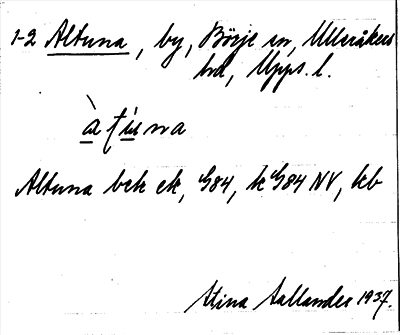 1-2 Altuna, by, Börje sn, Ulleråkers
hd, Upps. l.
àtuna
Altuna bck ek, G84, k G84 NV, kb
Stina Sallander 1937.